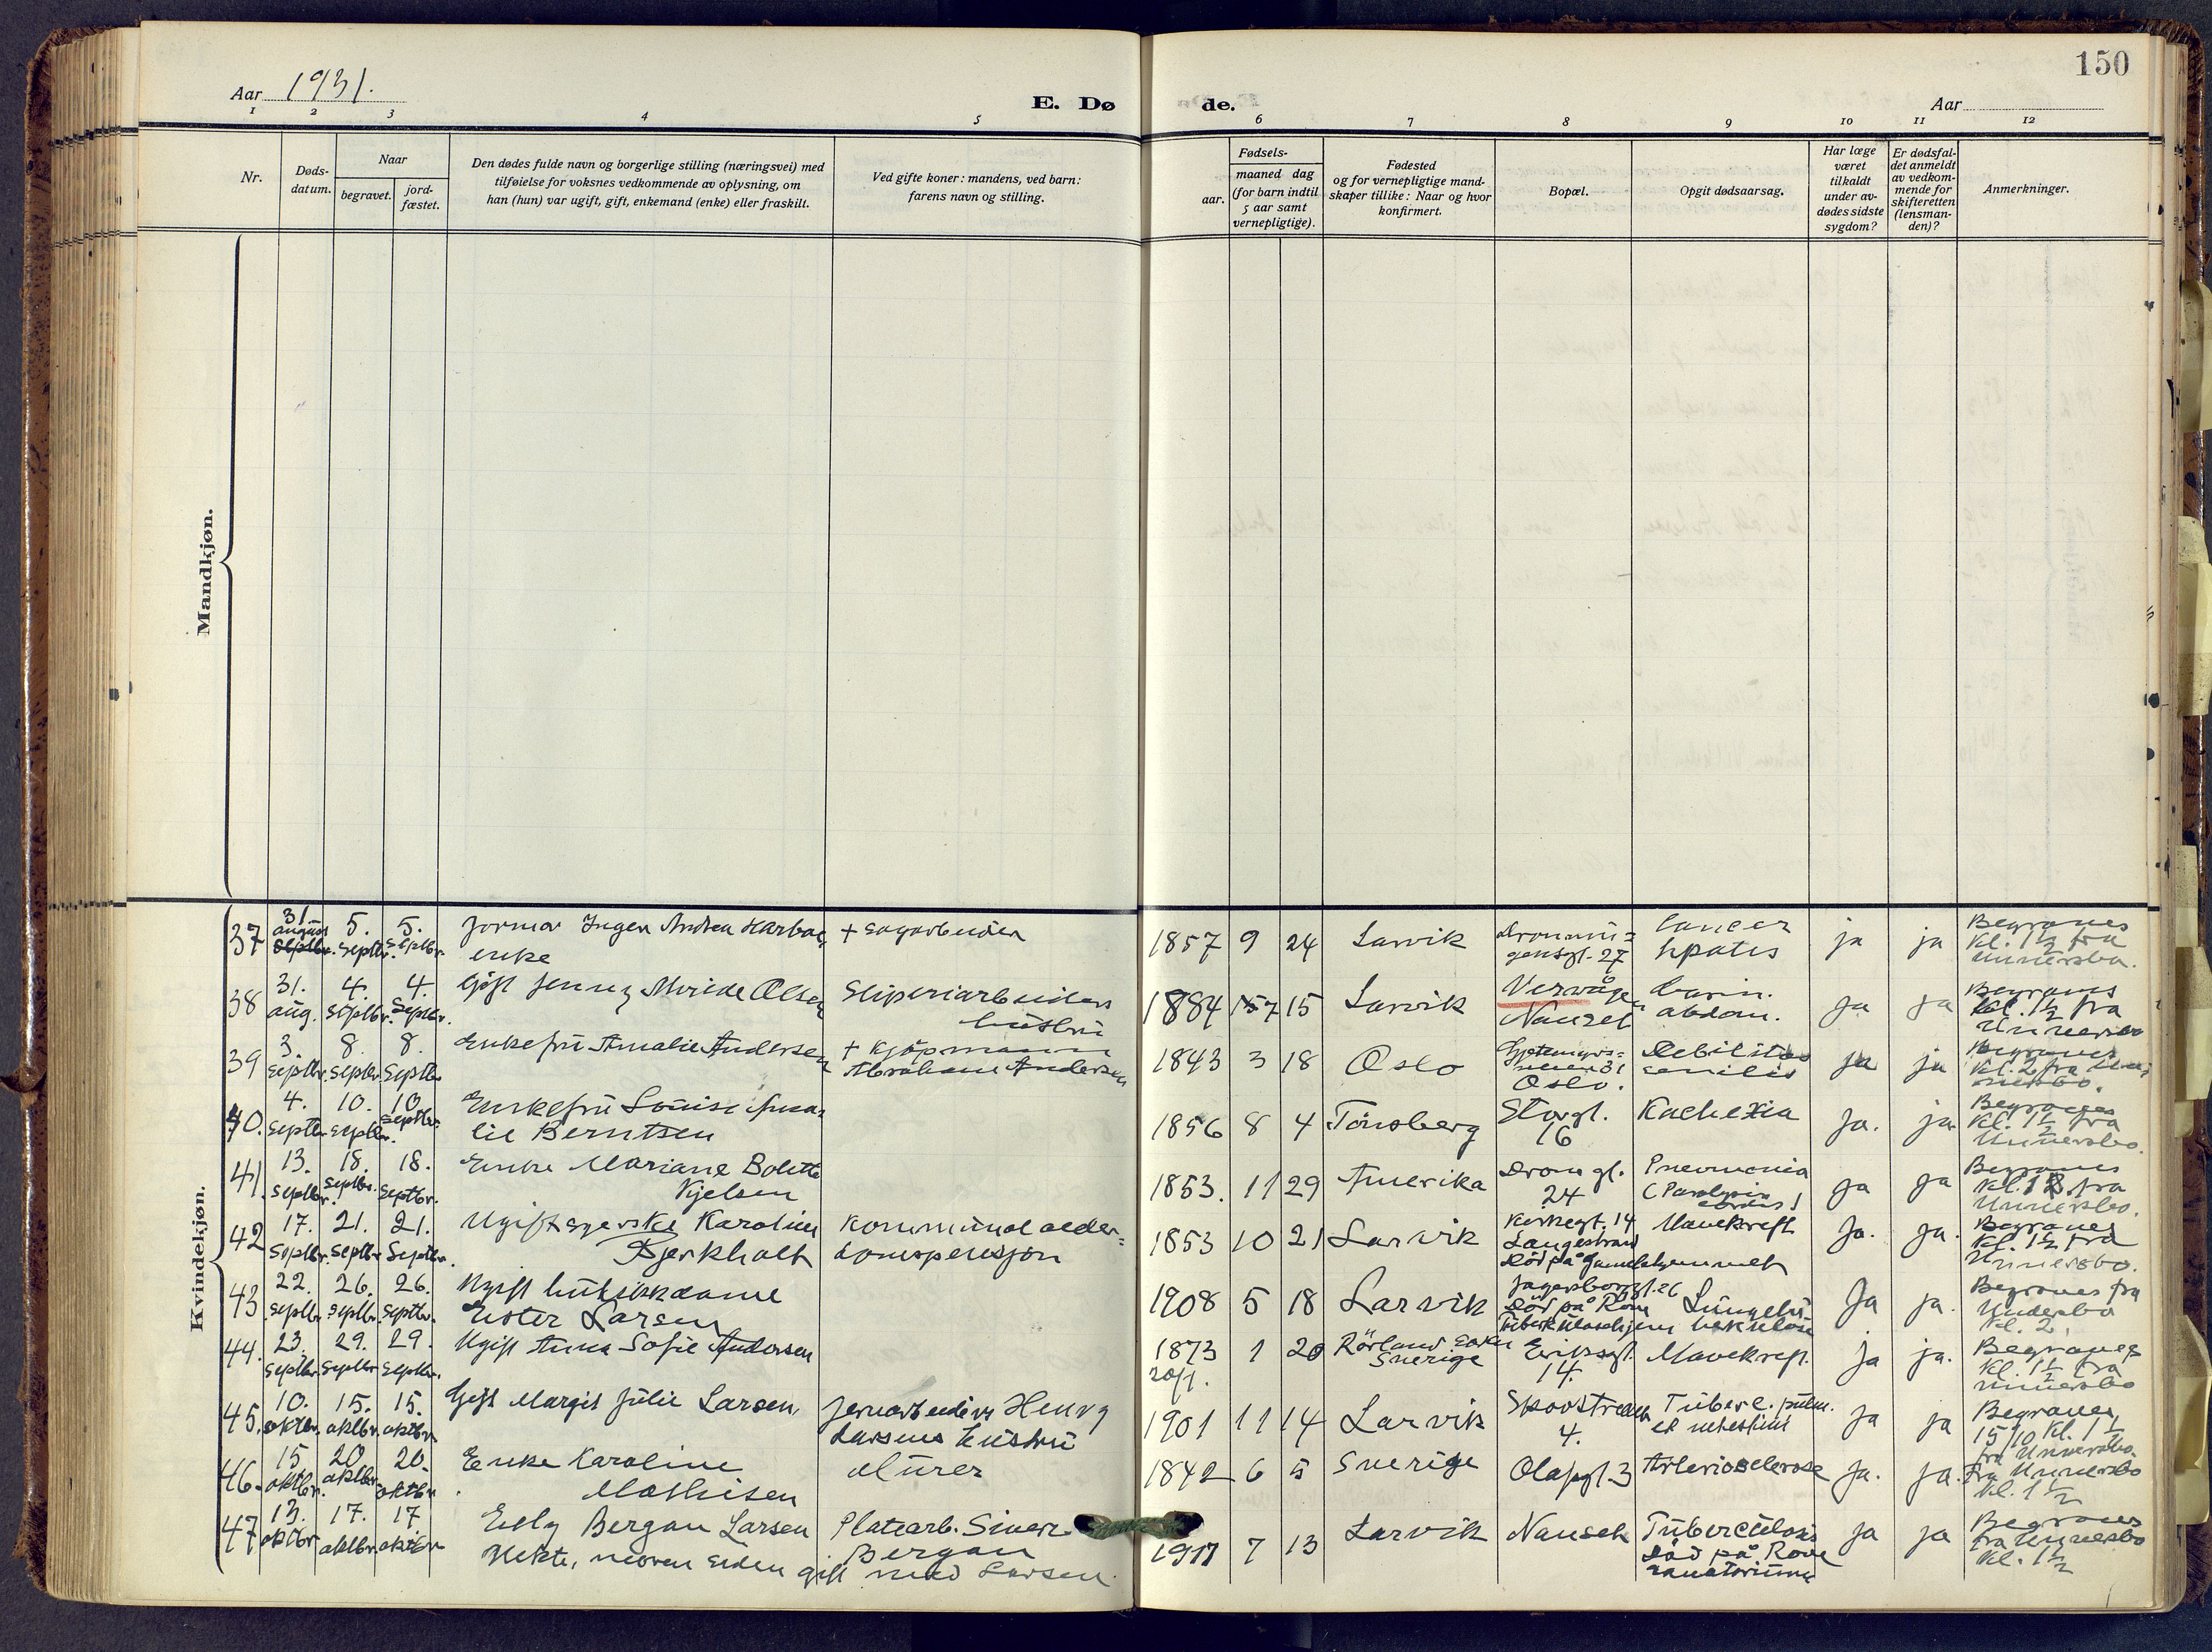 150
Aar 1931.
E. Dø de.
Aar
1 2 3 4 5 6 7 8 9 10 11 12
Nr.
Døds-
datum.
Naar
begravet.
jord-
fæstet.
Den dødes fulde navn og borgerlige stilling (næringsvei) med
tilføielse for voksnes vedkommende av oplysning, om
han (hun) var ugift, gift, enkemand (enke) eller fraskilt.
Ved gifte koner: mandens, ved barn:
farens navn og stilling.
Fødsels-
aar.
maaned dag
(for barn indtil
5 aar samt
vernepligtige).
Fødested
og for vernepligtige mand-
skaper tillike: Naar og hvor
konfirmert.
Bopæl.
Opgit dødsaarsag.
Har læge
været
tilkaldt
under av-
dødes sidste
sygdom?
Er dødsfal-
det anmeldt
av vedkom-
mende for
skifteretten
(lensman-
den)?
Anmerkninger.
Mandkjøn.
Kvindekjøn.
37 31. august 5. septbr. 5. septbr.
Inger Andrea
enke
1857 9 24 Larvik
gensgt. 27
Cancer
hpatis
ja ja
Begraves
kl. 1 1/2 fra
38 31. aug. 4. septbr. 4. septbr.
Gift Jenny Olsen
Sliperiarbeiders
hustru
1884 7 15 Larvik
Nanset
Carcin.
abdom.
ja ja
Begraves
kl. 1 1/2 fra
39 3. septbr. 8. septbr. 8. septbr.
Enkefru Amalie Andersen
+ Kjøpmann
Abraham Andersen
1843 3 18 Oslo
Oslo.
Debilitas
senilis
ja ja
Begraves
kl. 2 fra
40. 4. septbr. 10. septbr. 10. septbr.
Enkefru Louise Ama-
lie Berntsen
1856 8 4 Tönsberg
Storgt.
16
Kachexia
ja. ja.
Begraves
kl. 1 1/2 fra
41. 13. septbr. 18. septbr. 18. septbr.
Enke Mariane Bolette
Kjelsen
1853. 11 29 Amerika
Dronn gt.
24
Pneumonia
ja ja
Begraves
42 17. septbr. 21. septbr. 21. septbr.
Ugift syerske Karoline
Bjerkholt
Kommunal alder-
domspensjon
1853 10 21 Larvik
Kirkegt. 14
Langestrand
Död på Gamlehjemmet
Mavekreft
ja. ja.
Begraves
kl. 1 1/2 fra
43 22. septbr. 26. septbr. 26. septbr.
Ugift butikkdame
Ester Larsen
1908 5 18 Larvik
Jegersborggt. 26
Död på Rove
Tuberkulosehjem
Lungetu-
berkulose
Ja ja.
Begraves fra
Kl. 2.
44. 23. septbr. 29. septbr. 29. septbr.
Ugift Anna Sofie Andersen
1873 1 20
20/1.
Sverige
14.
Mavekreft.
ja ja.
Begraves
kl. 1 1/2 fra
45. 10. oktbr. 15. oktbr. 15. oktbr.
Gift Margit Julie Larsen,
Jernarbeider Henry
Larsens hustru
1901 11 14 Larvik
4.
Tuberc. pulm.
ja ja
Begraves
15/10 kl. 1 1/2
46. 15 oktbr. 20 oktbr. 20. oktbr
Enke Karoline
Mathisen
Murer
1842 6 5 Sverige
Olafsgt 3
Arteriosclerose
ja. ja.
kl. 1 1/2
47 13. oktbr 17. oktbr. 17 oktbr
Elly Bergan Larsen
Bergan
gift med Larsen.
1917 7 13 Larvik
Nanset
Tuberculosis
Död på Rove
sanatorium
ja ja
Begraves
kl. 1 1/2